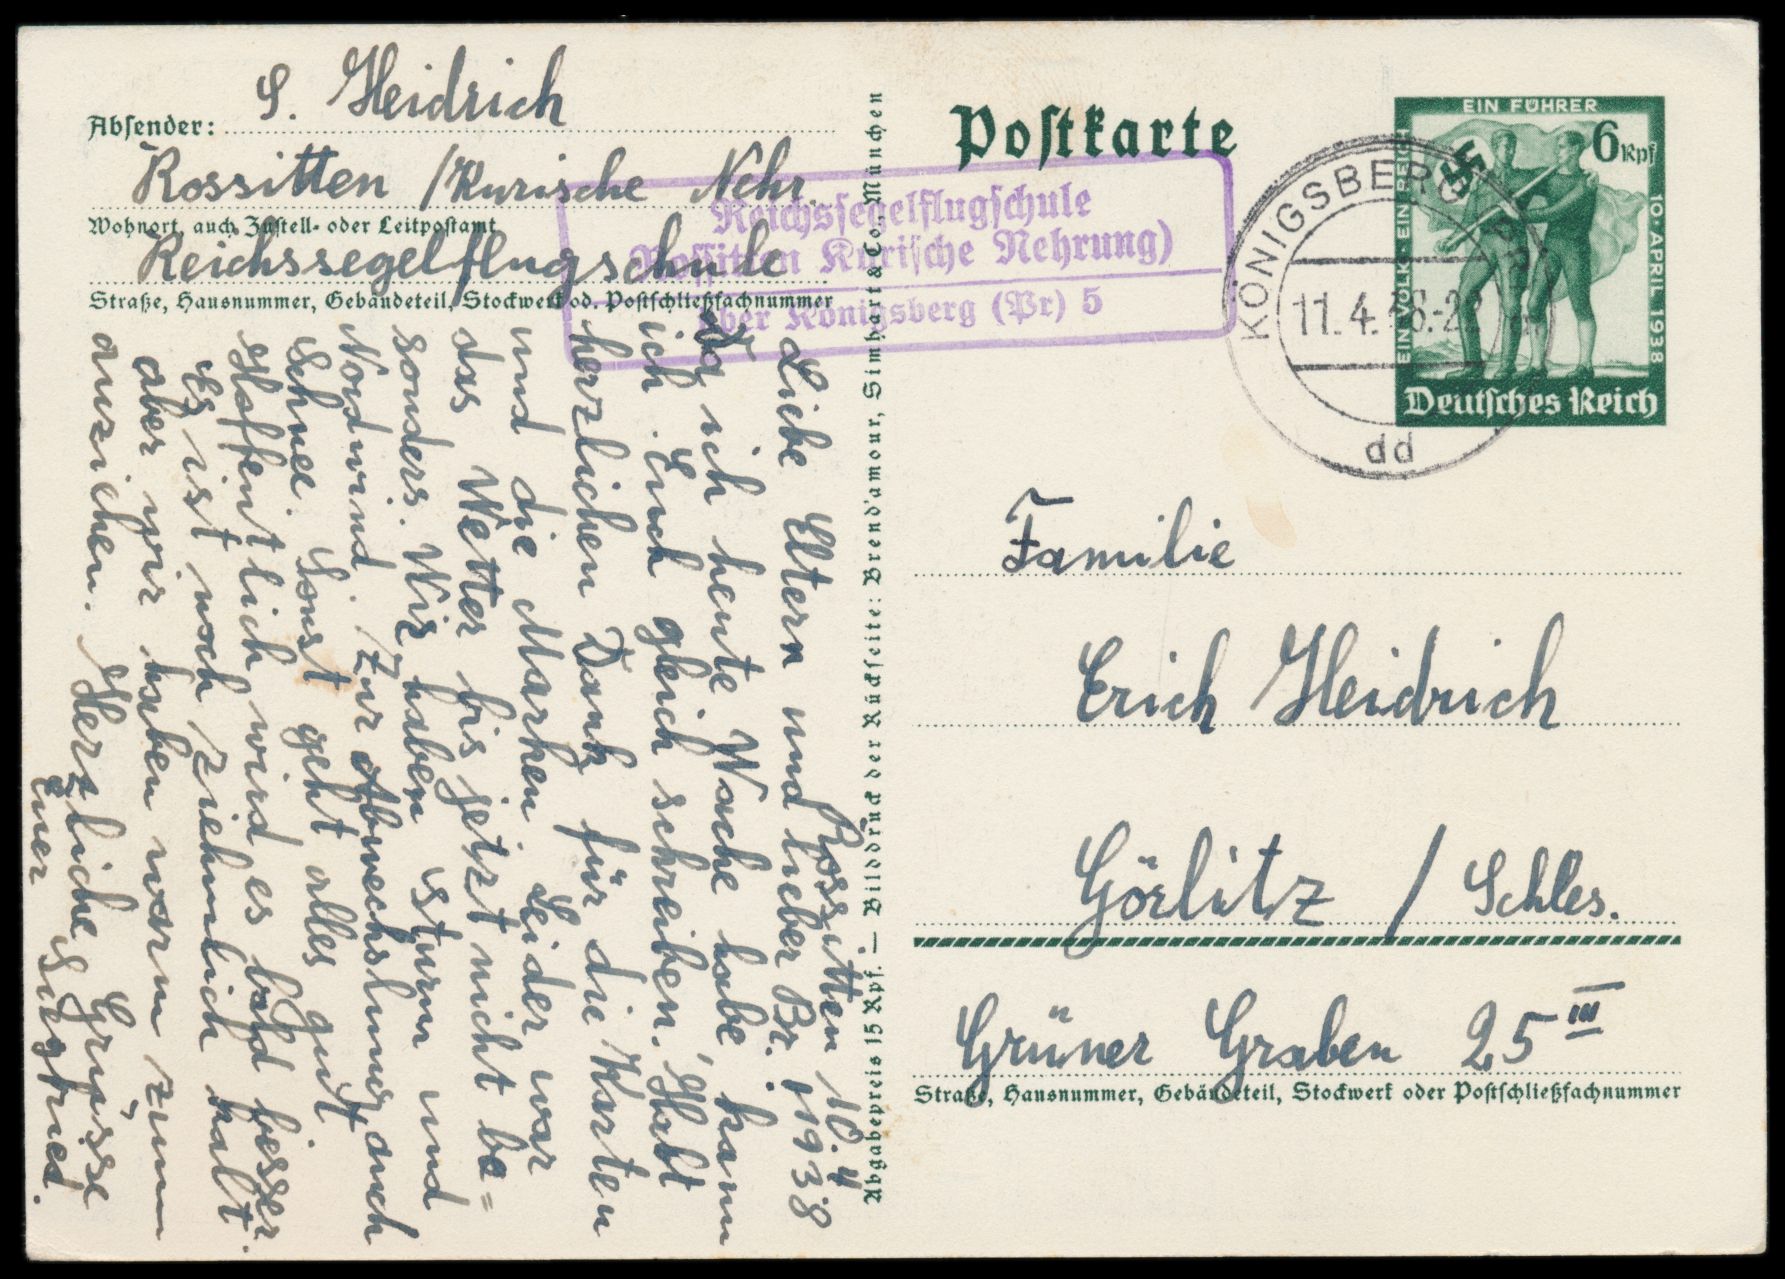 Absender: S. Heidrich
Rossitten / Kurische Nehr.
Wohnort, auch Zustell- oder Leitpostamt
Reichssegelflugschule
Straße, Hausnummer, Gebäudeteil, Stockwerk od. Postschließfachnummer
Reichssegelflugschule
Rossitten Kurische Nehrung)
über Königsberg (Pr) 5
Rossitten 10.4.1938
Liebe Eltern und lieber Br.!
Da ich heute Wache habe kann
ich Euch gleich schreiben. Habt
herzlichen Dank für die Karten
und die Marken. Leider war
das Wetter bis jetzt nicht be=
sonders. Wir haben Sturm und
Nordwind. Zur Abwechslung auch
Schnee. Sonst geht alles gut.
Hoffentlich wird es bald besser.
Es ist noch ziehmlich kalt
aber wir haben warm zum
anziehen. Herzliche Grüsse
Euer Siegfried.
Abgabepreis 15 Rpf. — Bilddruck der Rückseite: Brend'amour, Simhart & Co., München
Postkarte
EIN FÜHRER
EIN VOLK · EIN REICH
10·APRIL 1938
6 Rpf
Deutsches Reich
KÖNIGSBERG
11.4.38.-22
dd
Familie
Erich Heidrich
Görlitz / Schles.
Grüner Graben 25 III
Straße, Hausnummer, Gebäudeteil, Stockwerk oder Postschließfachnummer